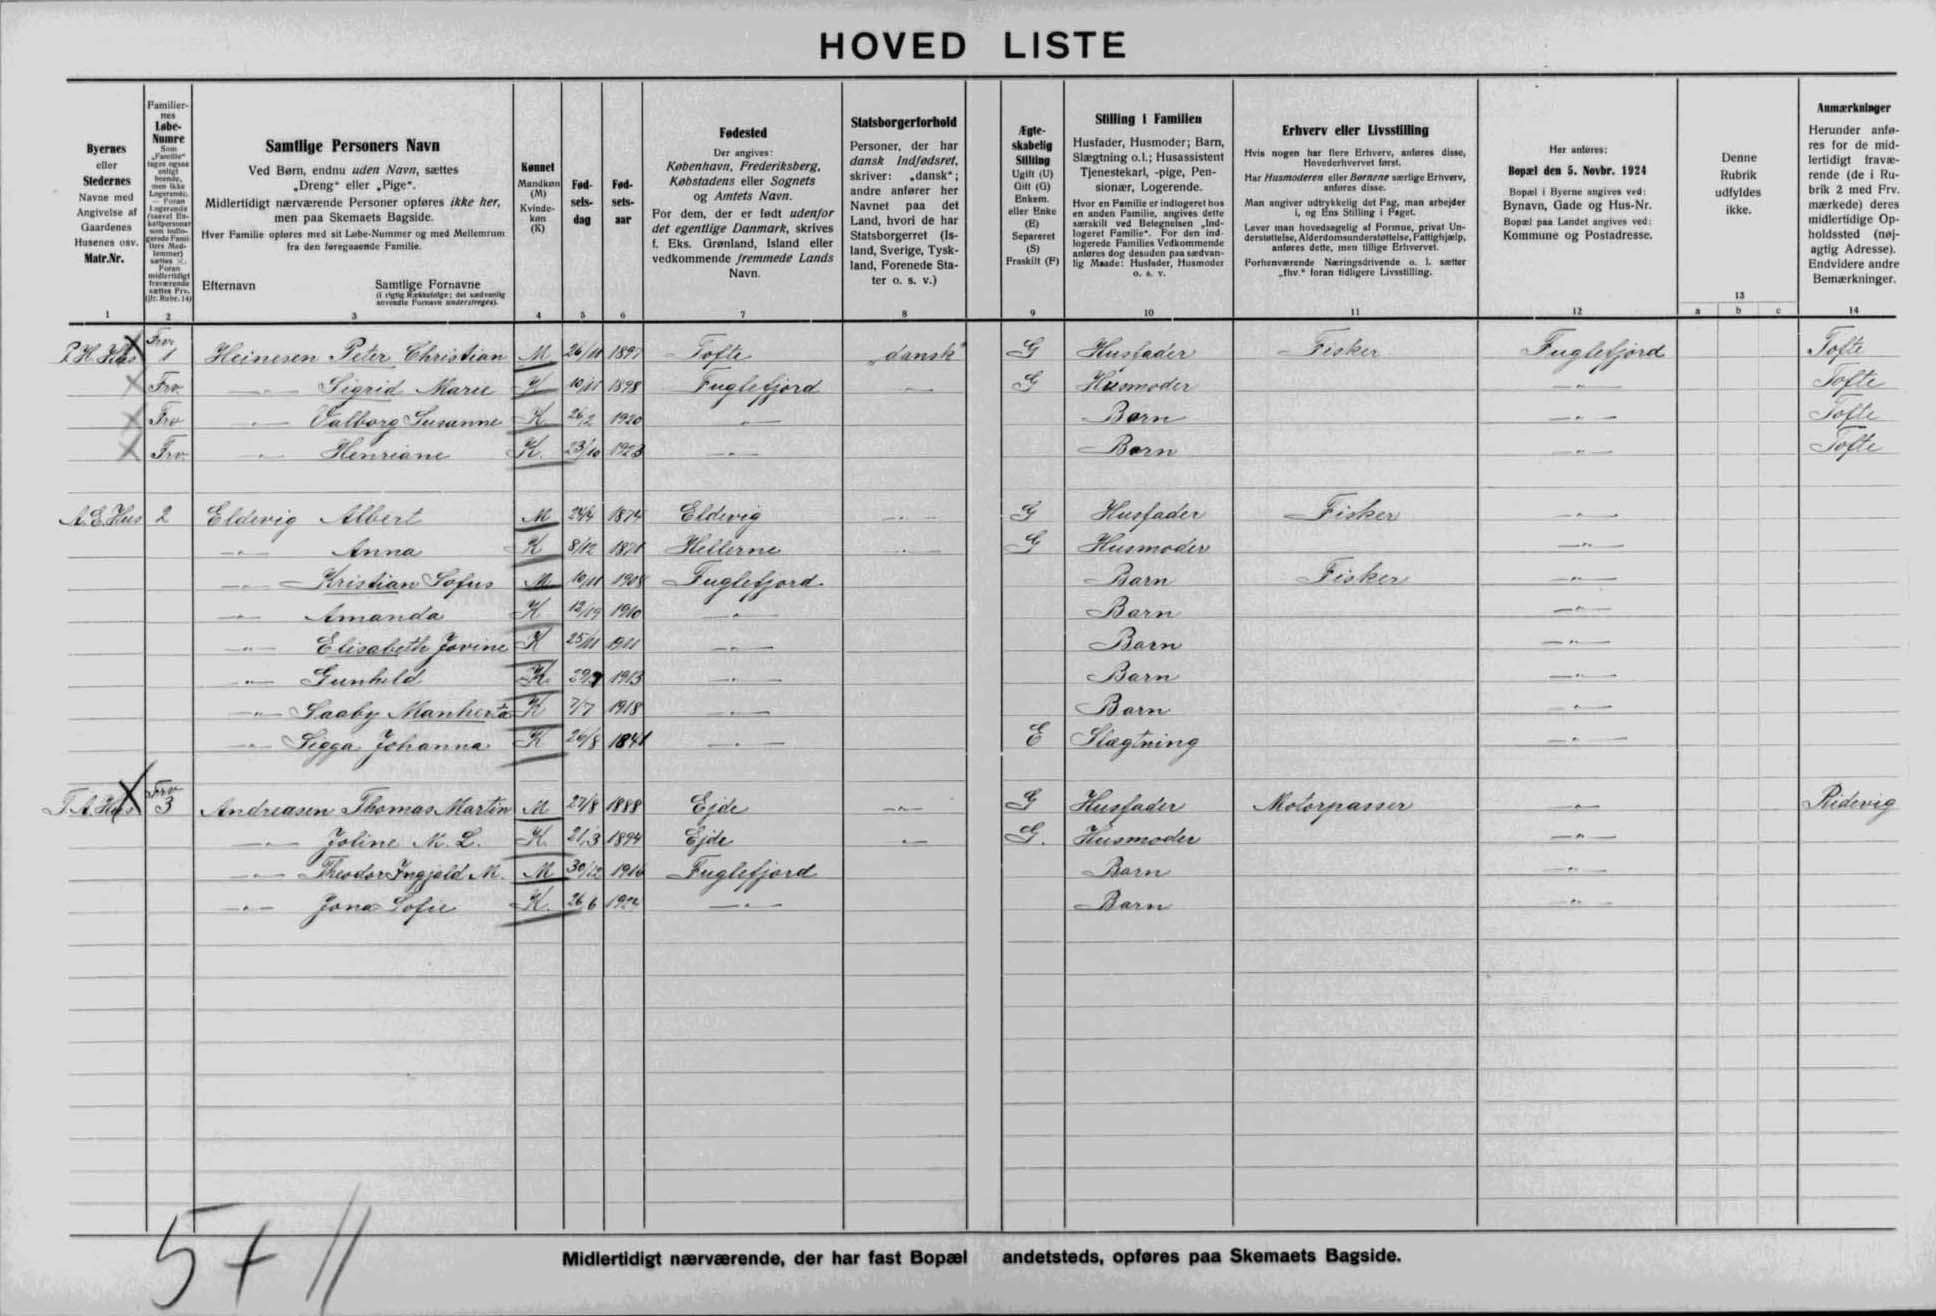 HOVED LISTE
Byernes eller Stedernes Navne med Angivelse af Gaardenes Husenes osv. Matr.Nr.
Familiernes Løbe-Numre Som „Familie“ tages ogsaa enligt boende, men ikke Logerende. — Foran Logerende (saavel Enkeltpersoner som indlogerende Familiers Medlemmer) sættes ×. Foran midlertidigt fraværende sættes Frv. (jfr. Rubr. 14)
Samtlige Personers Navn
Ved Børn, endnu uden Navn, sættes „Dreng“ eller „Pige“.
Midlertidigt nærværende Personer opføres ikke her, men paa Skemaets Bagside.
Hver Familie opføres med sit Løbe-Nummer og med Mellemrum fra den foregaaende Familie.
Efternavn Samtlige Fornavne
(i rigtig Rækkefølge; det sædvanlig anvendte Fornavn understreges).
Kønnet Mandkøn (M) Kvindekøn (K)
Fødselsdag
Fødselsaar
Fødested
Der angives: København, Frederiksberg, Købstadens eller Sognets og Amtets Navn.
For dem, der er født udenfor det egentlige Danmark, skrives f. Eks. Grønland, Island eller vedkommende fremmede Lands Navn.
Statsborgerforhold
Personer, der har dansk Indfødsret, skriver: „dansk“; andre anfører her Navnet paa det Land, hvori de har Statsborgerret (Island, Sverige, Tyskland, Forenede Stater o. s. v.)
Ægteskabelig Stilling Ugift (U) Gift (G) Enkem. eller Enke (E) Separeret (S) Fraskilt (F)
Stilling i Familien
Husfader, Husmoder; Barn, Slægtning o.l.; Husassistent Tjenestekarl, -pige, Pensionær, Logerende.
Hvor en Familie er indlogeret hos en anden Familie, angives dette særskilt ved Betegnelsen „Indlogeret Familie“. For den indlogerede Families Vedkommende anføres dog desuden paa sædvanlig Maade: Husfader, Husmoder o. s. v.
Erhverv eller Livsstilling
Hvis nogen har flere Erhverv, anføres disse, Hovederhvervet først.
Har Husmoderen eller Børnene særlige Erhverv, anføres disse.
Man angiver udtrykkelig det Fag, man arbejder i, og Ens Stilling i Faget.
Lever man hovedsagelig af Formue, privat Understøttelse, Alderdomsunderstøttelse, Fattighjælp, anføres dette, men tillige Erhvervet.
Forhenværende Næringsdrivende o. l. sætter „fhv.“ foran tidligere Livsstilling.
Her anføres:
Bopæl den 5. Novbr. 1924
Bopæl i Byerne angives ved: Bynavn, Gade og Hus-Nr.
Bopæl paa Landet angives ved: Kommune og Postadresse.
Denne Rubrik udfyldes ikke.
Anmærkninger
Herunder anføres for de midlertidigt fraværende (de i Rubrik 2 med Frv. mærkede) deres midlertidige Opholdssted (nøjagtig Adresse). Endvidere andre Bemærkninger.
1 2 3 4 5 6 7 8 9 10 11 12 13 a b c 14
P. H. Hus Frv. 1 Heinesen Peter Christian M 26/11 1897 Tofte „dansk“ G Husfader Fisker Fuglefjord Tofte
× Frv. —„— Sigrid Marie K 10/11 1898 Fuglefjord —„— G Husmoder —„— Tofte
× Frv —„— Valborg Susanne K. 26/2 1920 —„— Barn —„— Tofte
× Frv. —„— Henriane K. 23/10 1923 —„— Barn —„— Tofte
A. E. Hus 2 Eldevig Albert M 24/4 1874 Eldevig —„— G Husfader Fisker —„—
—„— Anna K 8/12 1871 Hellerne —„— G Husmoder —„—
—„— Kristian Sofus M 10/11 1908 Fuglefjord Barn Fisker —„—
—„— Amanda K 1910 —„— Barn —„—
—„— Elisabeth Jovine K 25/11 1911 —„— Barn —„—
—„— Gunhild K. 1913 —„— Barn —„—
—„— Saaby Manherta K 7/7 1918 —„— Barn —„—
—„— Sigga Johanna K 26/8 1841 —„— E Slægtning —„—
T. A. Hus Frv 3 Andreasen Thomas Martin M 27/8 1888 Ejde —„— G Husfader Motorpasser —„— Ridevig
—„— Joline M. L. K. 21/3 1894 Ejde —„— G. Husmoder —„—
—„— Theodor Ingjald M. M 30/12 1916 Fuglefjord Barn —„—
—„— Jona Sofie K. 26/6 1922 —„— Barn —„—
5 + 11
Midlertidigt nærværende, der har fast Bopæl andetsteds, opføres paa Skemaets Bagside.